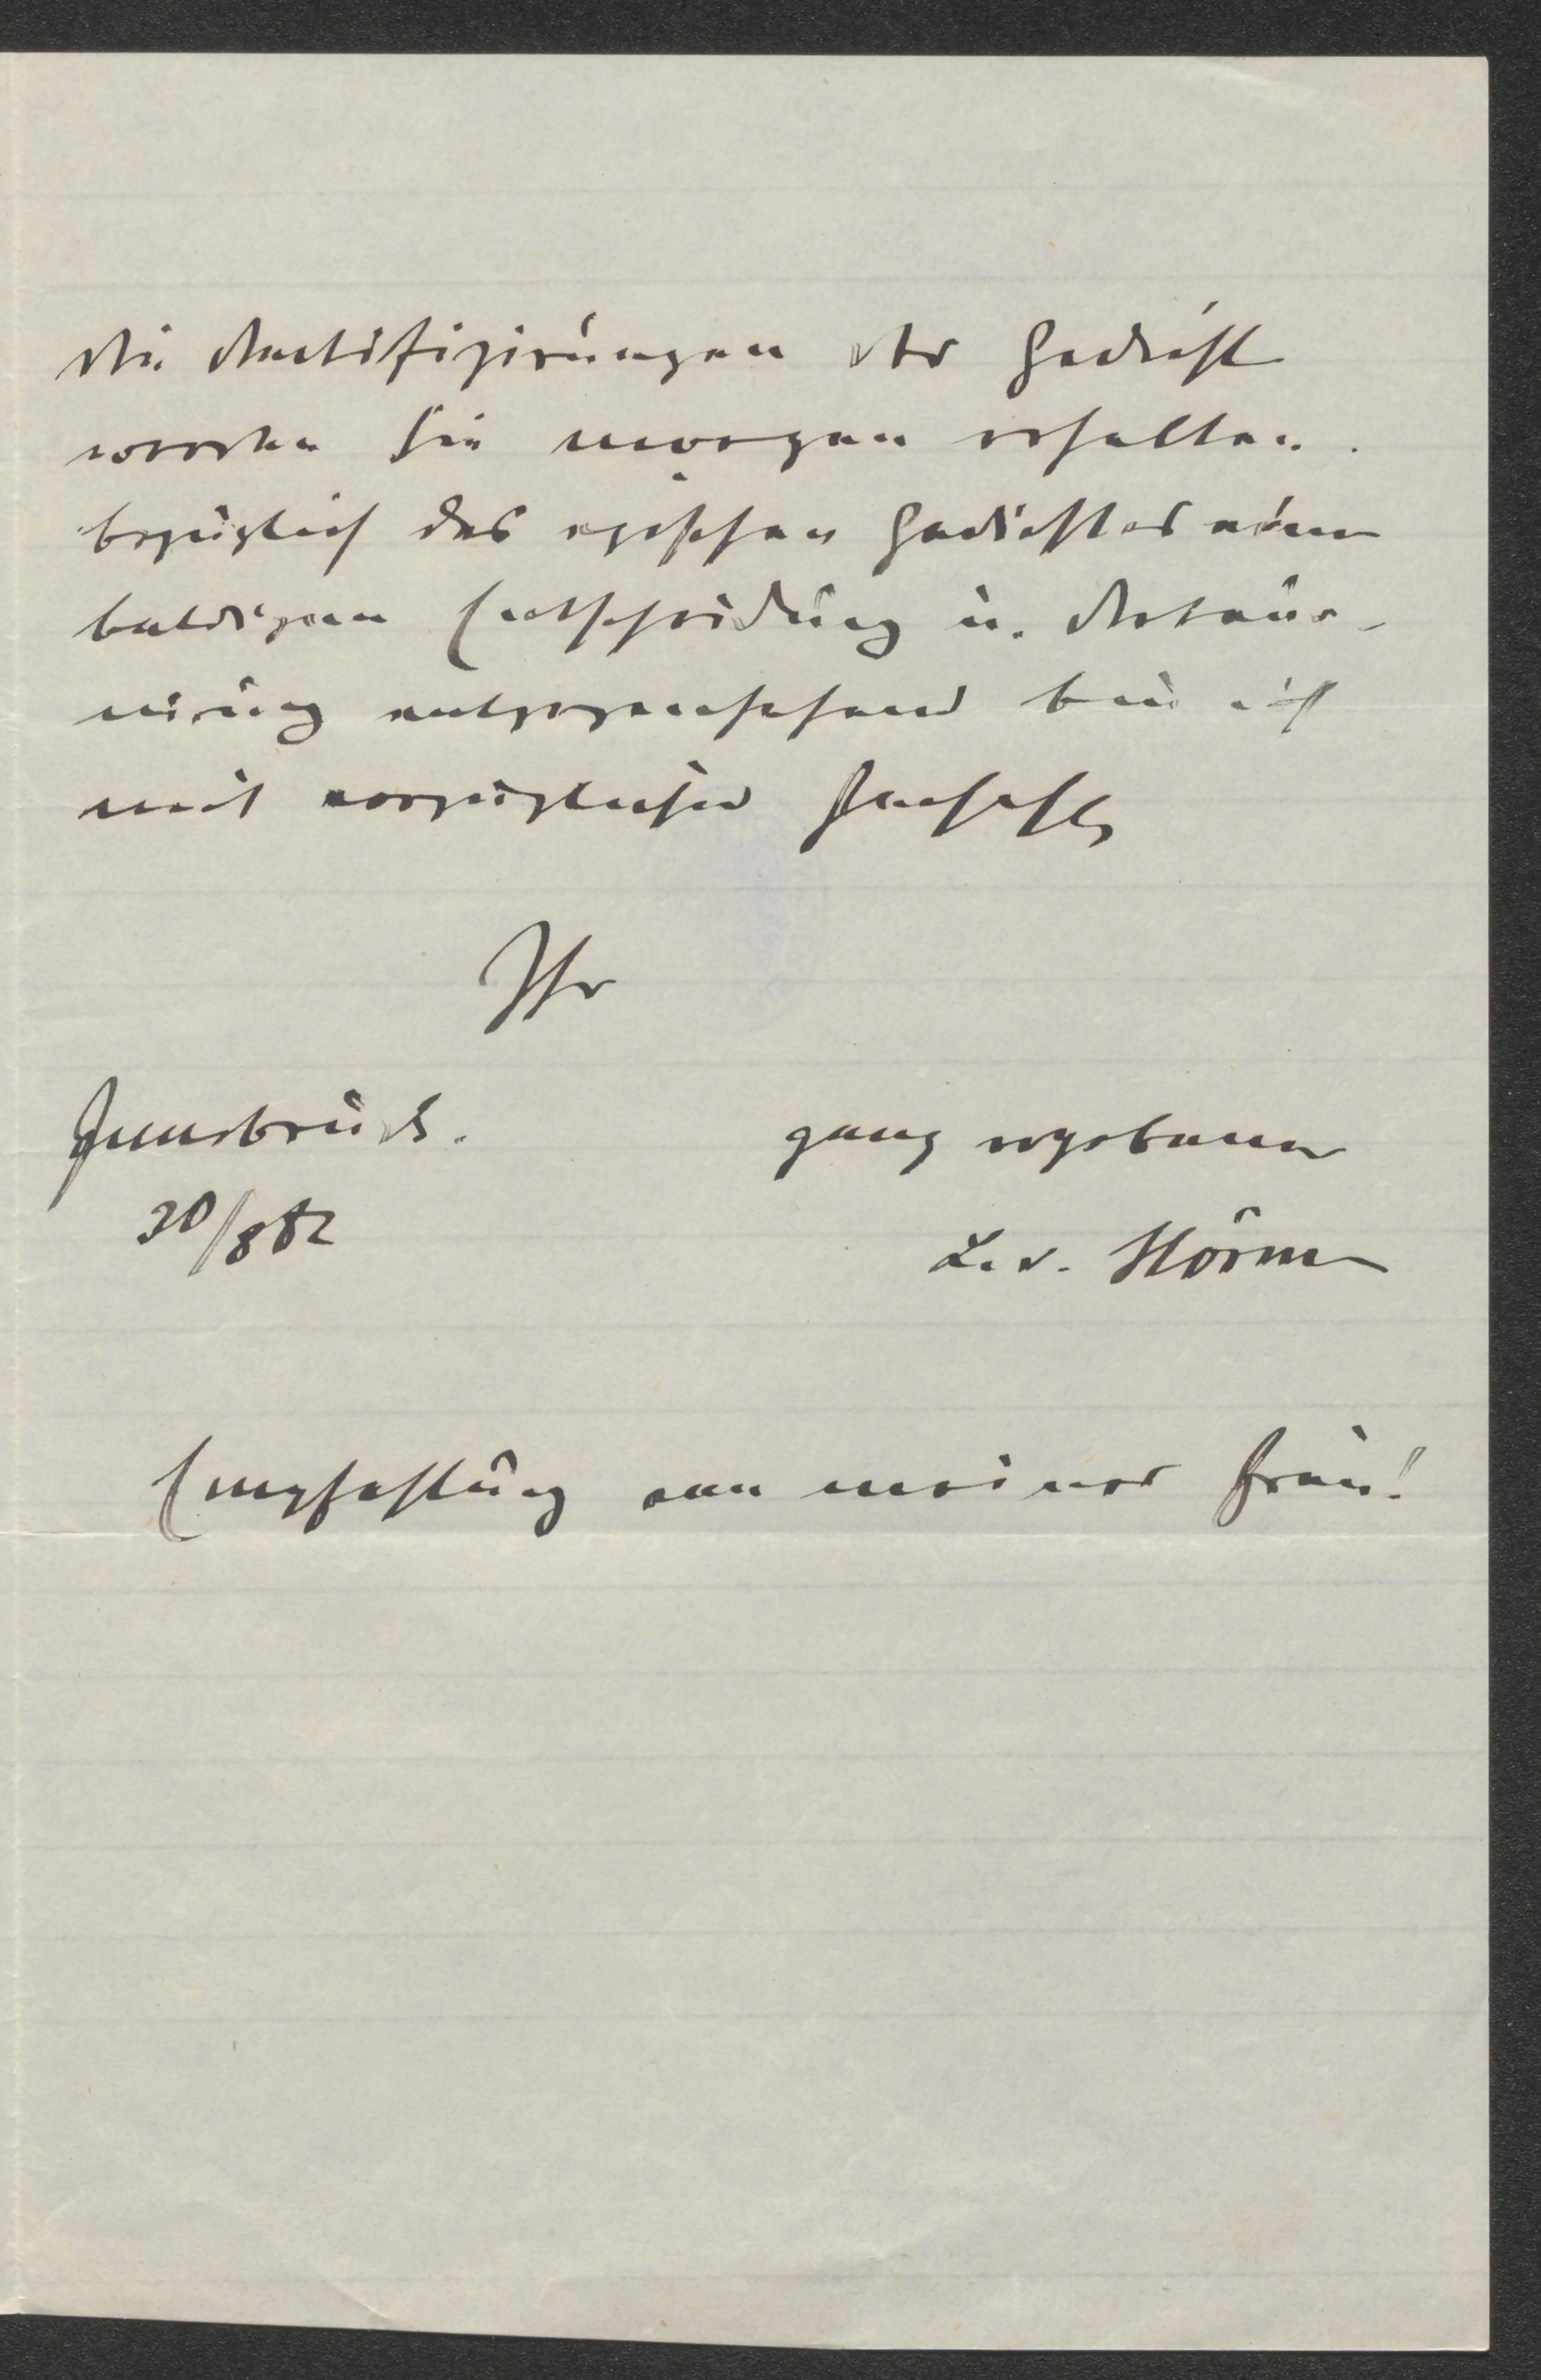 die Rectifizirungen der Gedichte
werden Sie morgen erhalten.
bezüglich des epischen Gedichtes einer
baldigen Entscheidung u. Retour-
nirung entgegensehend bin ich
mit vorzüglicher Hochacht
Ihr
Innsbruck.
30/8 82
ganz ergebener
L. v. Hörmann
Empfehlung von meiner Frau!